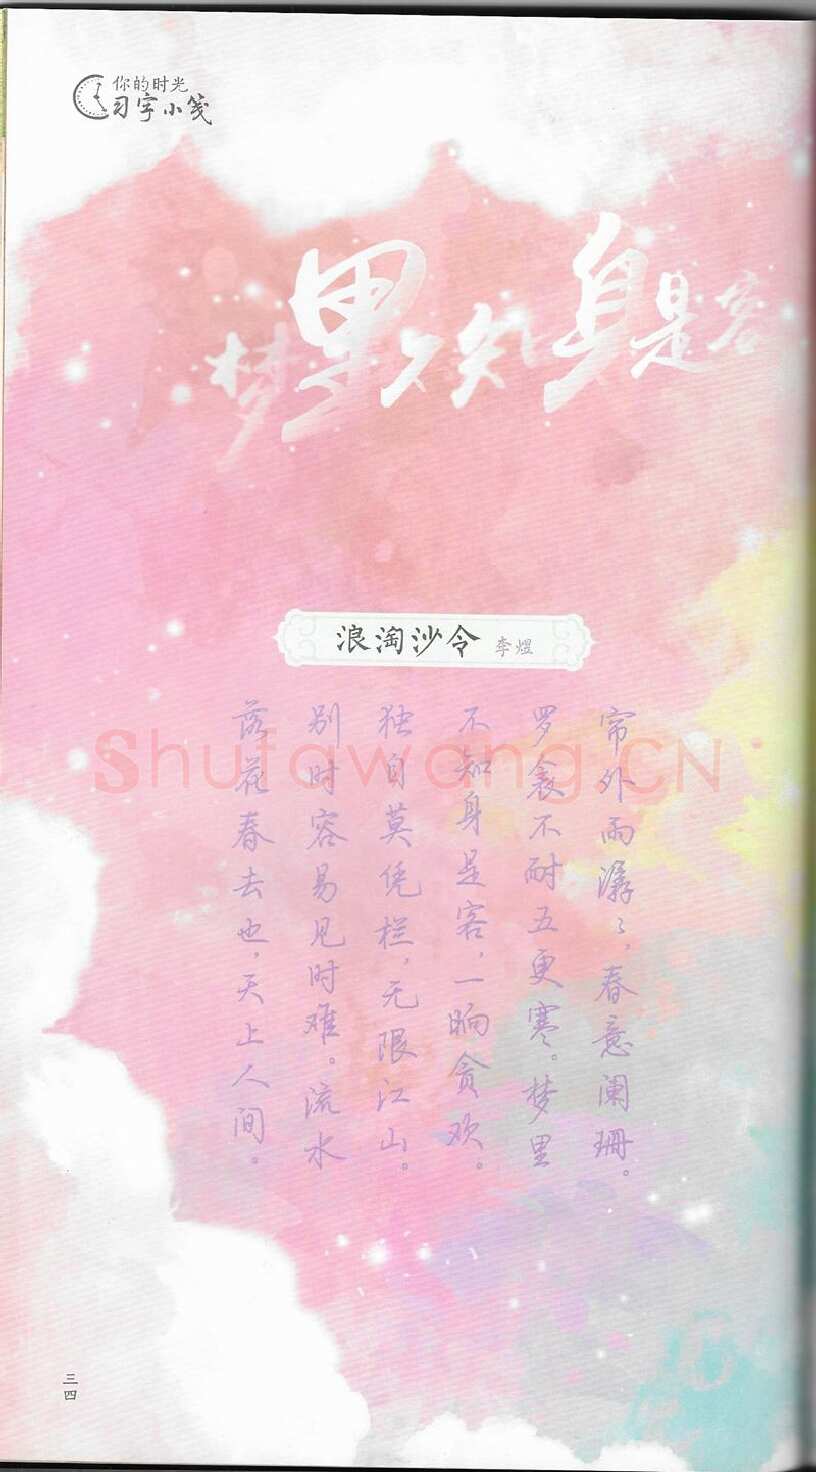 你的时光
习字小笺
梦里不知身是客
浪淘沙令 李煜
帘外雨潺〻，春意阑珊。
罗衾不耐五更寒。梦里
不知身是客，一晌贪欢。
独自莫凭栏，无限江山。
别时容易见时难。流水
落花春去也，天上人间。
Shufawang.CN
三四